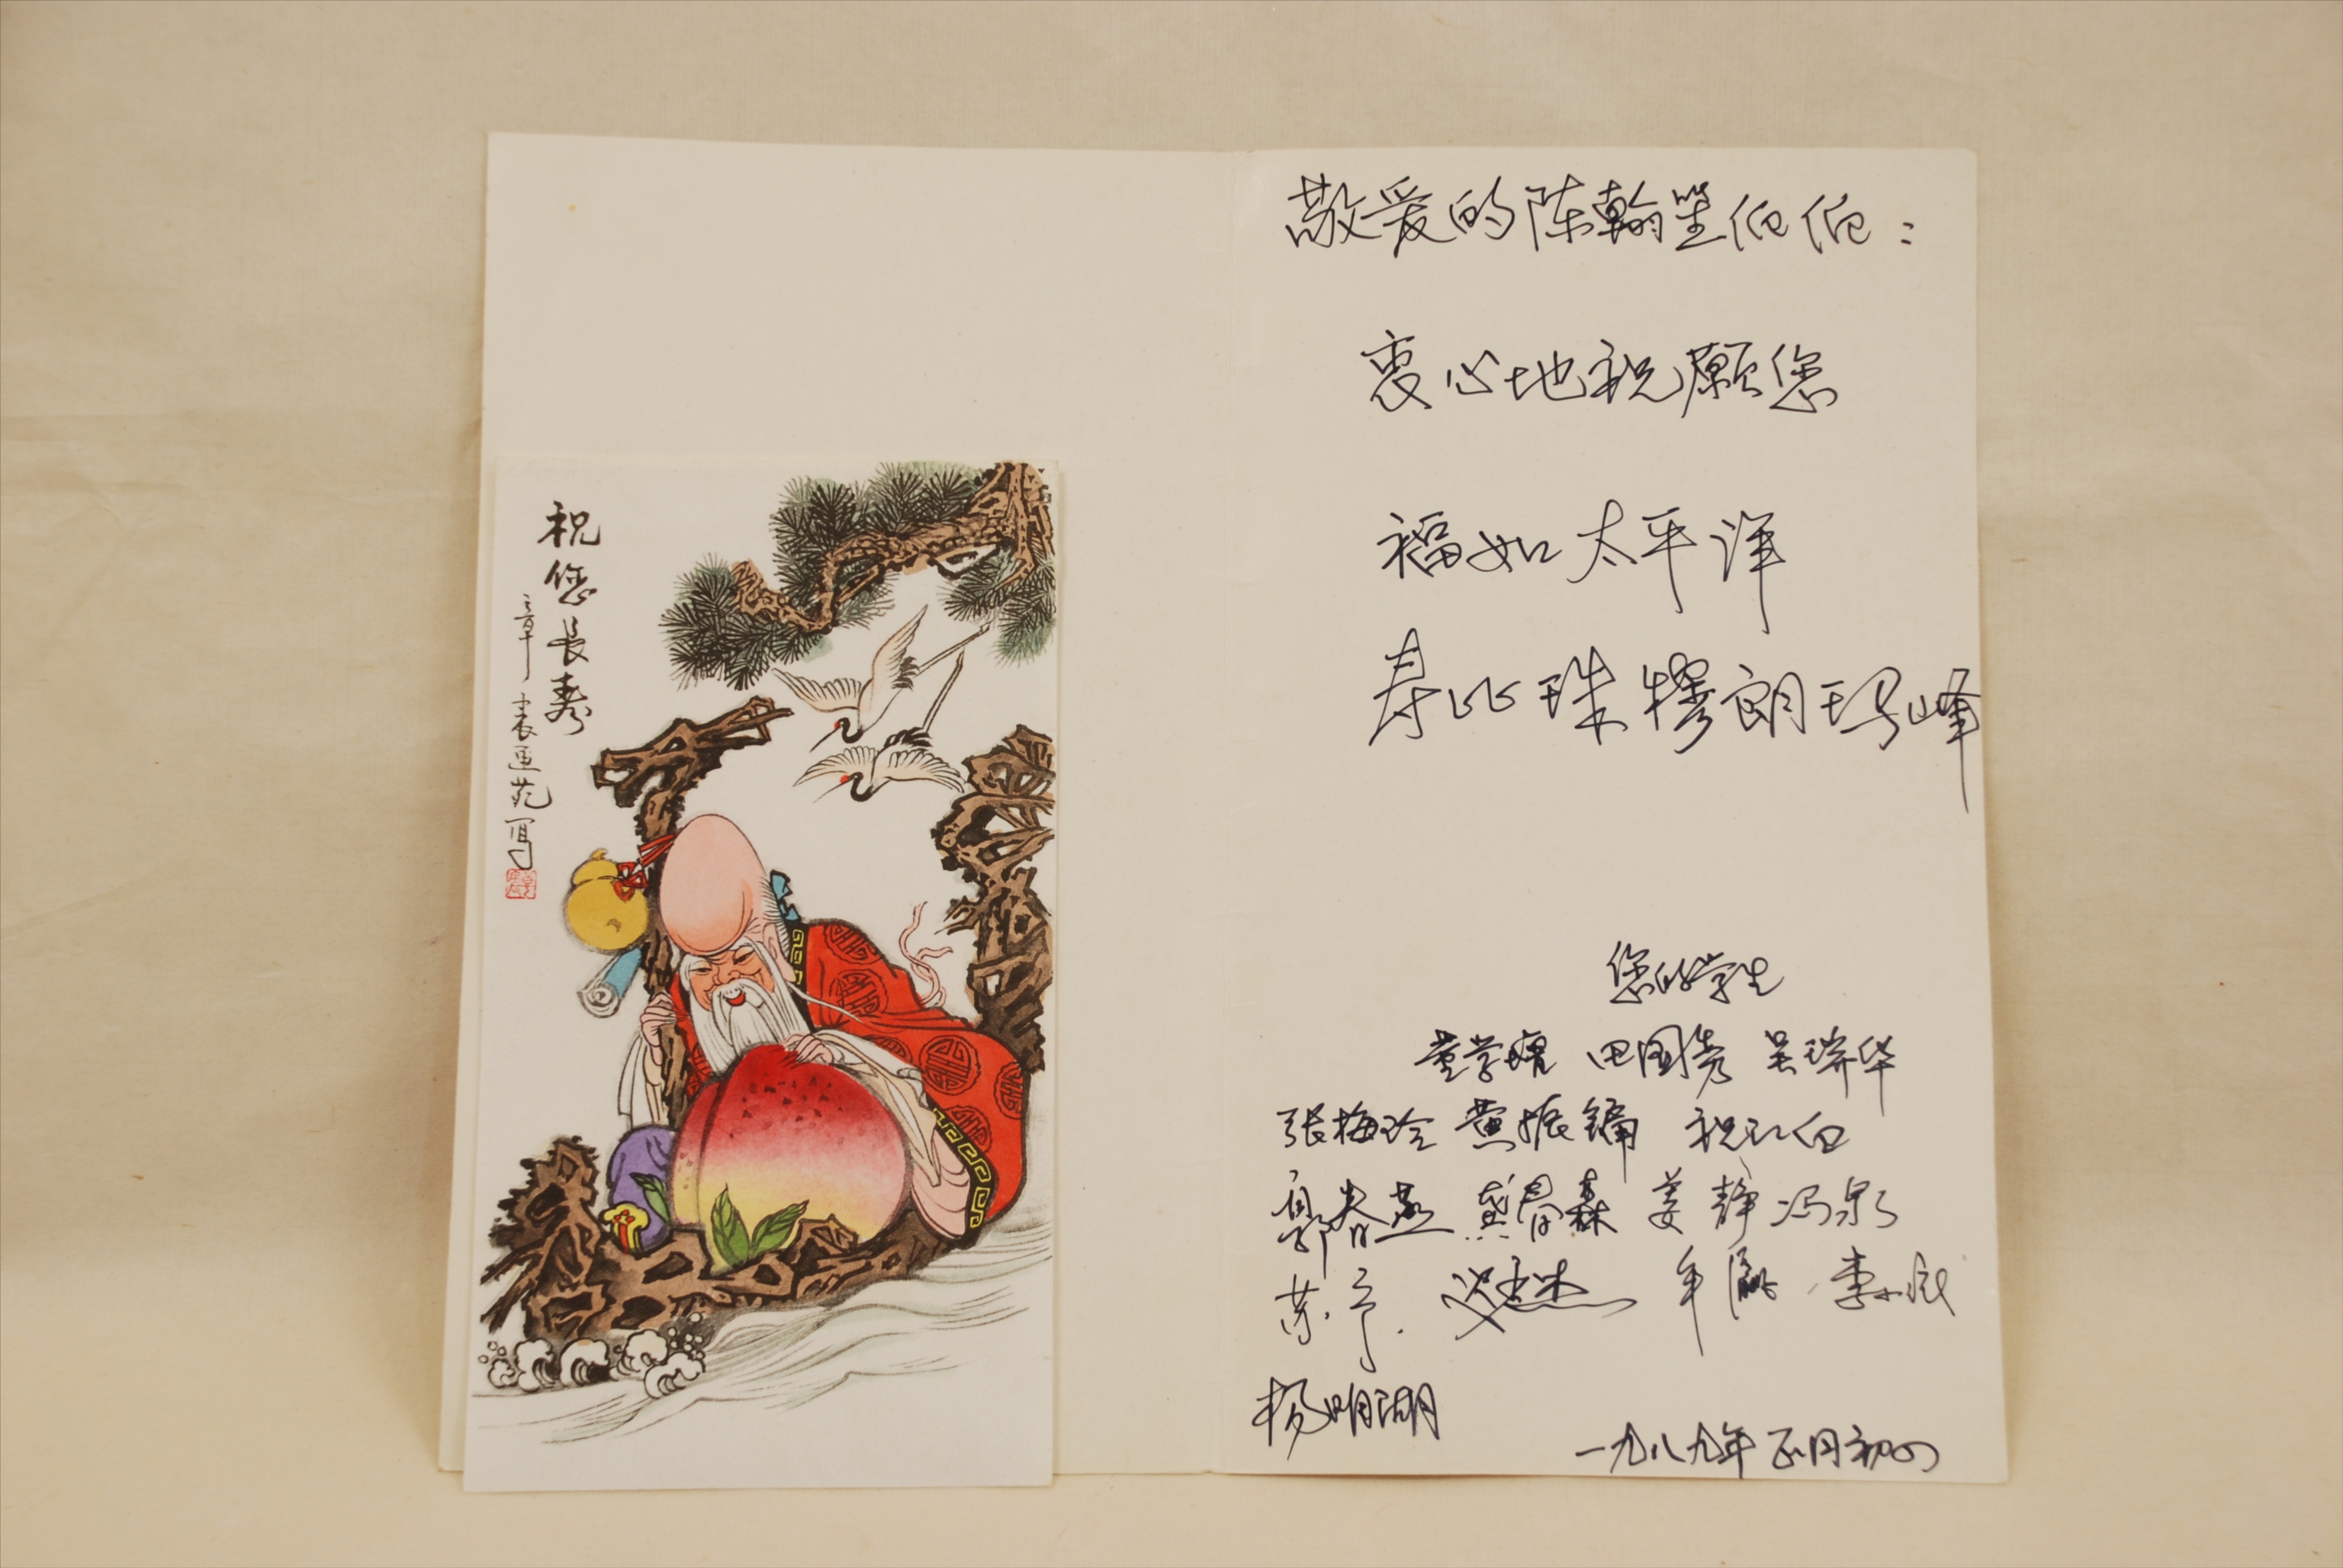 祝您长寿
袁亚苑写
敬爱的陈翰笙伯伯：
衷心地祝愿您
福如太平洋
寿比珠穆朗玛峰
您的学生
董学增 田国秀 吴瑞华
张梅玲 黄振镛 祝红向
郭春燕 龚育森 姜静 冯泉
苏予 年 李
杨明湖
一九八九年正月初四